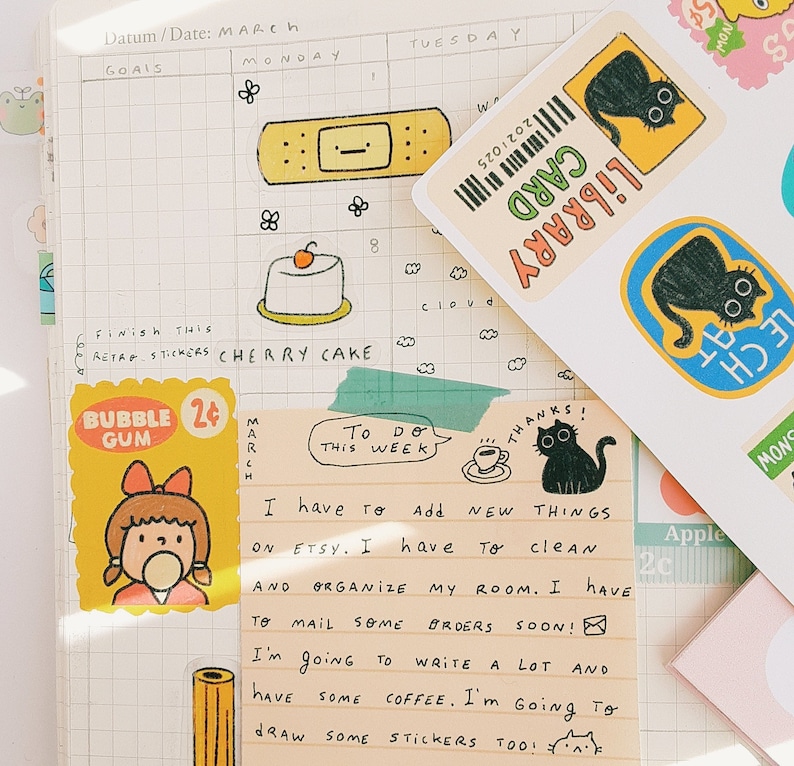 Datum / Date: MARCH
GOALS
MONDAY
TUESDAY
1
8
cloud
FINISH THIS
RETRO STICKERS
CHERRY CAKE
BUBBLE
GUM
2¢
MARCH
TO DO
THIS WEEK
THANKS!
I have TO Add NEW THINGS
ON ETSY. I have TO clEAN
AND ORGANIZE MY ROOM. I HAVE
TO MAIL SOME ORDERS SOON!
I'm gOING TO WRITE A LOT AND
HAVE SOME COFFEE. I'm GOING TO
dRAW SOME STICKERS TOO!
2021025
LiBRARY
CARD
LE CH
AT
5¢
NOW!
SNOW
Apple
2c